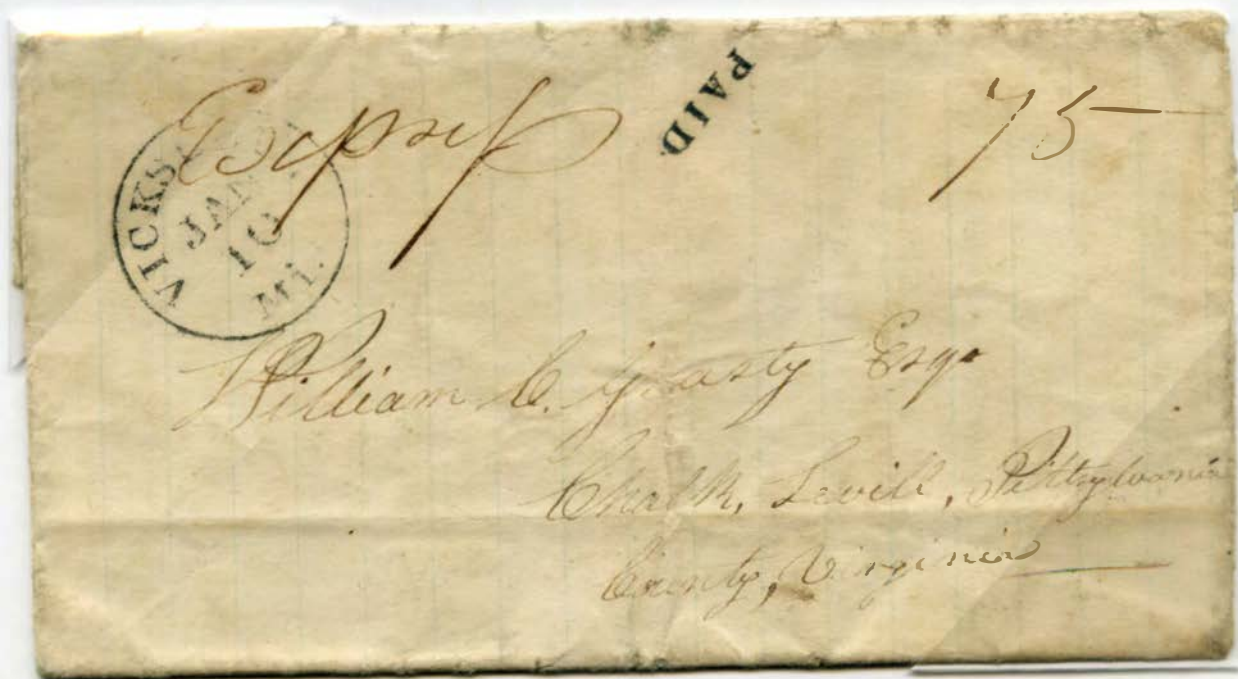 Express PAID 75
VICKSBURG
JAN
10
Mi.
William C. Grasty Esqr
Chalk, Levill, Pittsylvania
County, Virginia